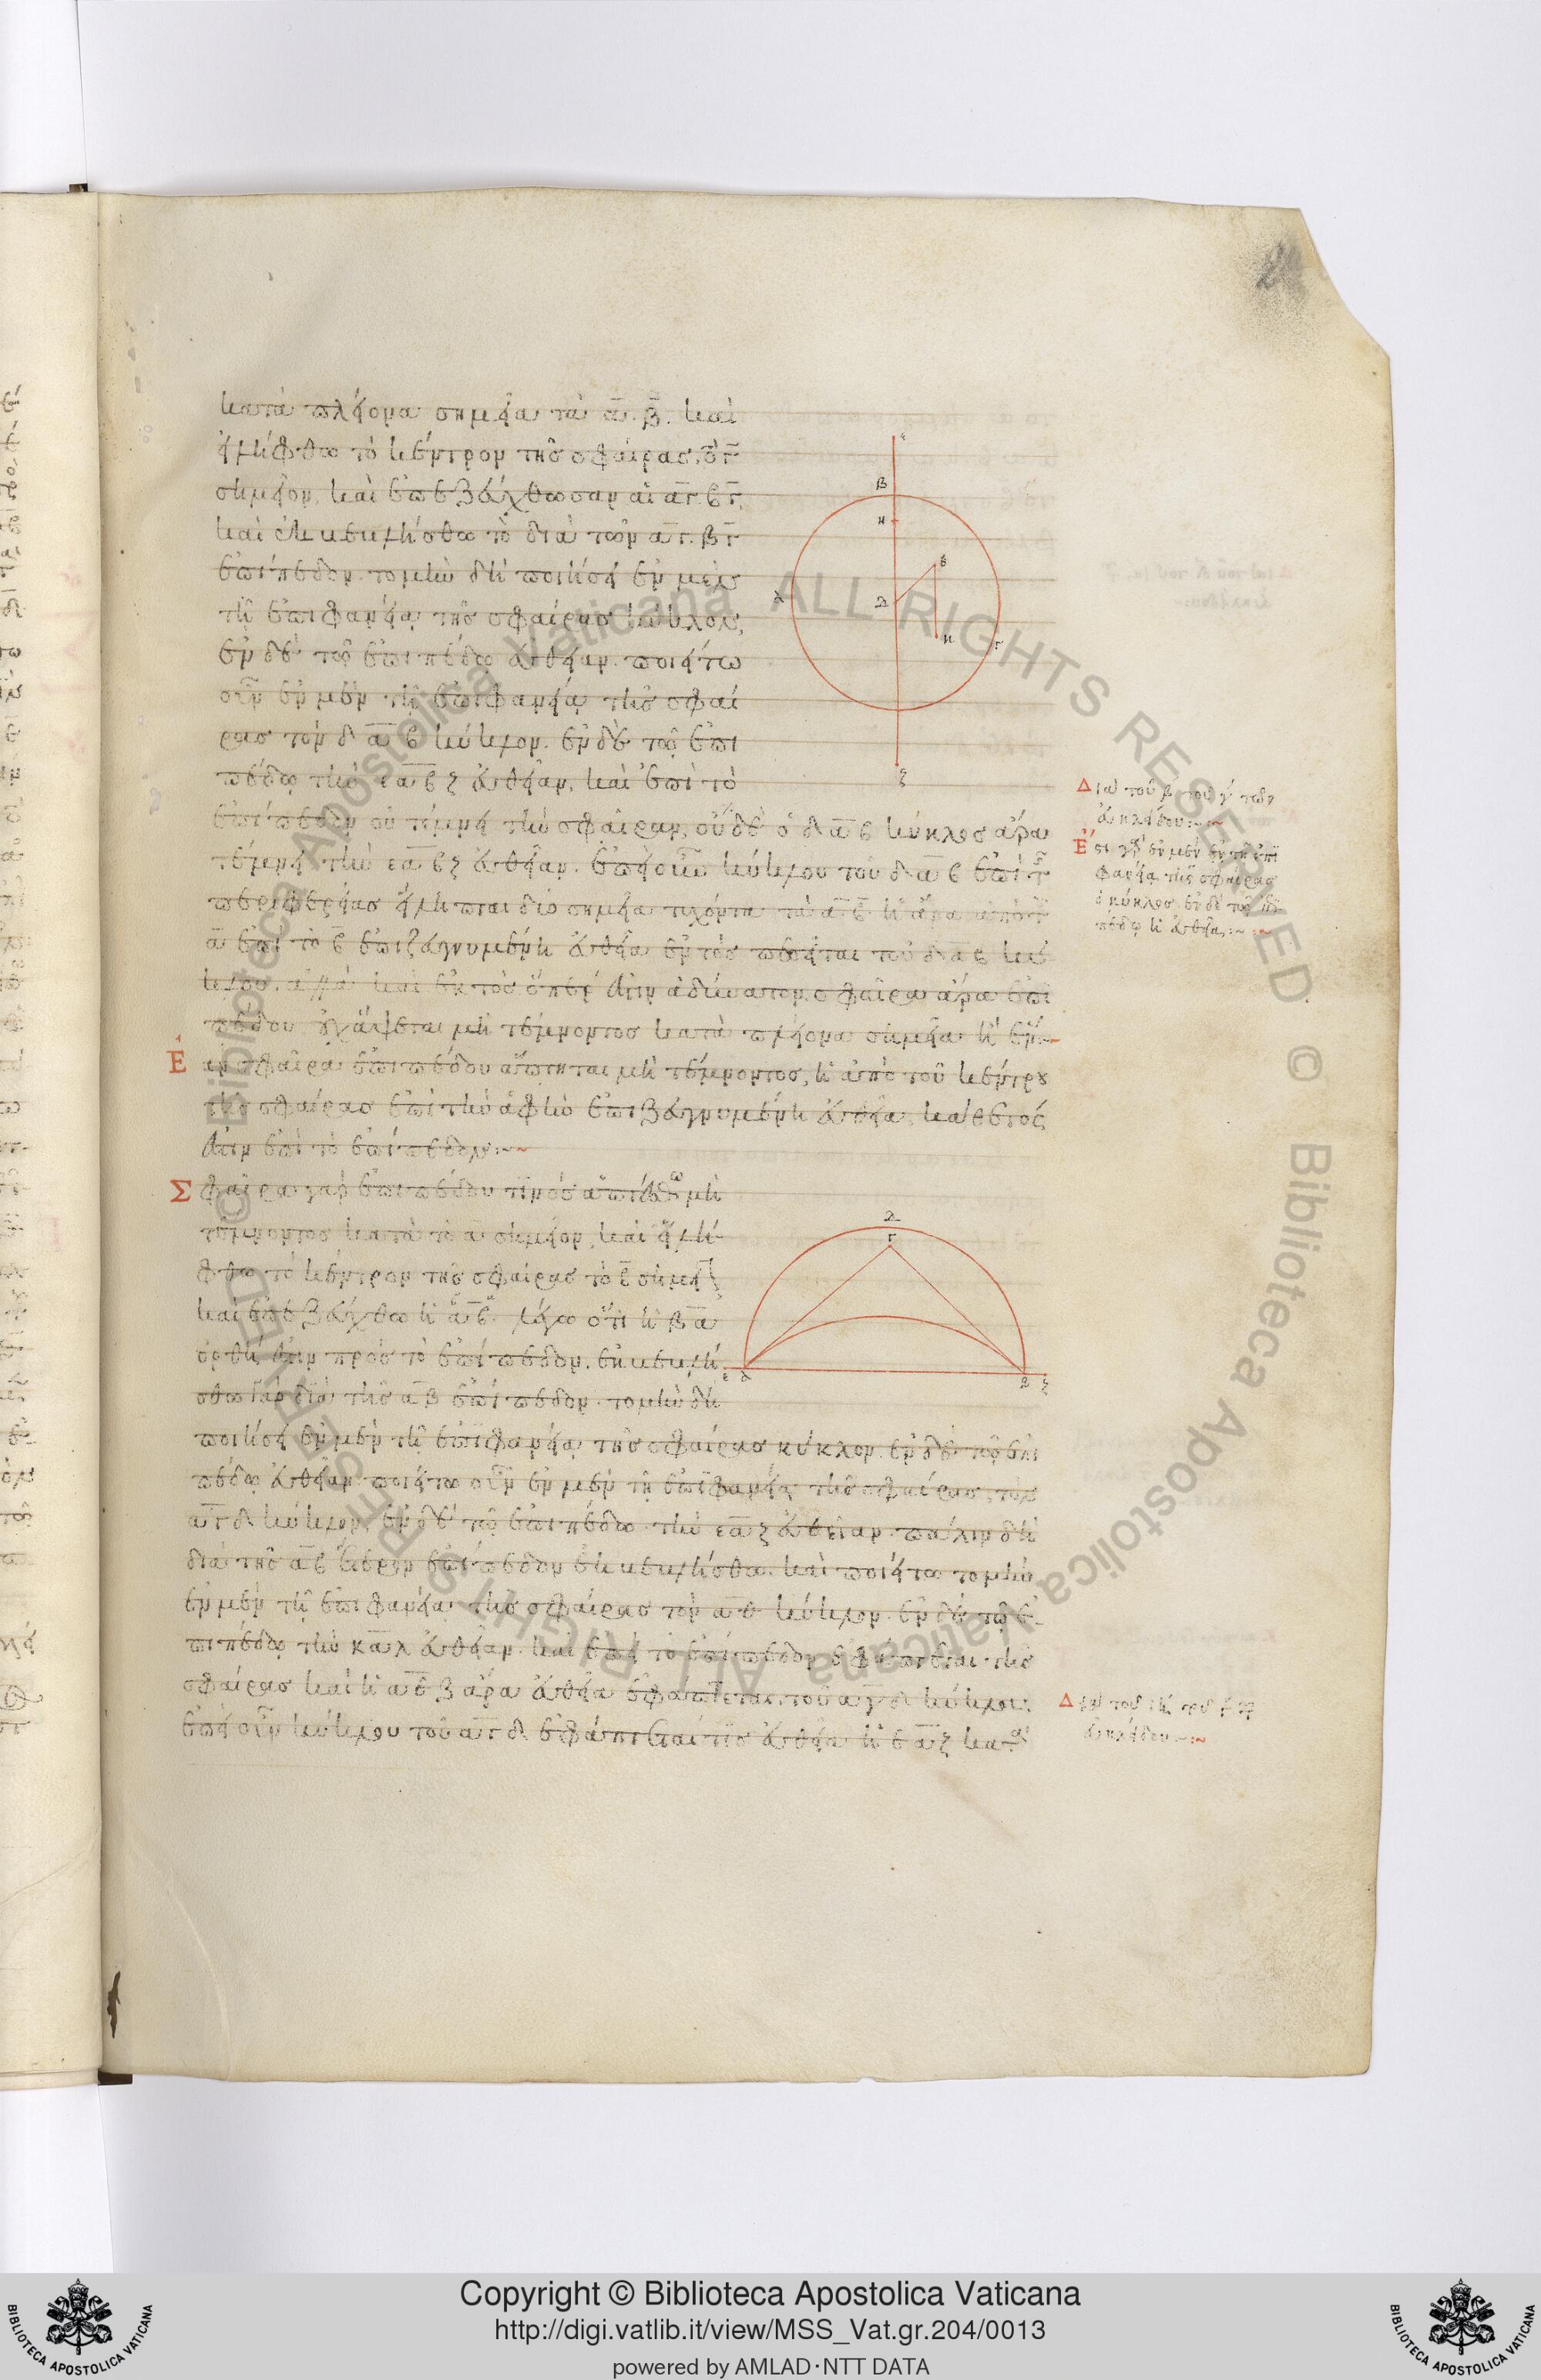 κατὰ πλείονα σημεῖα τὰ α. β. καὶ
εἰλήφθω τὸ κέντρον τῆς σφαίρας
σημεῖον, καὶ ἐπεζεύχθωσαν αἱ αγ. βγ,
καὶ ἐκβεβλήσθω τὸ διὰ τῶν αγ. βγ
ἐπίπεδον. τομὴν δὴ ποιήσει ἐν μὲν
τῇ ἐπιφανείᾳ τῆς σφαίρας κύκλον,
ἐν δὲ τῷ ἐπιπέδῳ εὐθεῖαν. ποιείτω
οὖν ἐν μὲν τῇ ἐπιφανείᾳ τῆς σφαί
ρας τὸν δαβ κύκλον. ἐν δὲ τῷ ἐπι
πέδῳ τὴν εαβζ εὐθεῖαν, καὶ ἐπεὶ τὸ
ἐπίπεδον οὐ τέμνει τὴν σφαῖραν, οὐδὲ ὁ δαβ κύκλος ἄρα
τέμνει τὴν εαβζ εὐθεῖαν. ἐπεὶ οὖν κύκλου τοῦ δαβ ἐπὶ τ
περιφερείας εἴληπται δύο σημεῖα τυχόντα τὰ αβ ἡ ἄρα ἀπὸ τοῦ
α ἐπὶ τὸ β ἐπιζευγνυμένη εὐθεῖα ἐντὸς πεσεῖται τοῦ δαβ κύ
κλου. ἀλλὰ καὶ ἐκτὸς ὅπερ ἐστὶν ἀδύνατον. σφαῖρα ἄρα ἐπι
πέδου οὐχ ἅψεται μὴ τέμνοντος κατὰ πλείονα σημεῖα ἢ ἕν:~
Ἐὰν σφαῖρα ἐπιπέδου ἅπτηται μὴ τέμνοντος, ἡ ἀπὸ τοῦ κέντρου
τῆς σφαίρας ἐπὶ τὴν ἁφὴν ἐπιζευγνυμένη εὐθεῖα, κάθετός
ἐστιν ἐπὶ τὸ ἐπίπεδον:~
Σφαῖρα γὰρ ἐπιπέδου τινὸς ἁπτέσθω μὴ
τέμνοντος κατὰ τὸ α σημεῖον, καὶ εἰλή
φθω τὸ κέντρον τῆς σφαίρας τὸ β σημεῖον
καὶ ἐπεζεύχθω ἡ αβ. λέγω ὅτι ἡ βα
ὀρθή ἐστιν πρὸς τὸ ἐπίπεδον. ἐκβεβλή
σθω γὰρ διὰ τῆς αβ ἐπίπεδον. τομὴν δὴ
ποιήσει ἐν μὲν τῇ ἐπιφανείᾳ τῆς σφαίρας κύκλον. ἐν δὲ τῷ ἐπι
πέδῳ εὐθεῖαν. ποιείτω οὖν ἐν μὲν τῇ ἐπιφανείᾳ τῆς σφαίρας, τὸν
αγδ κύκλον, ἐν δὲ τῷ ἐπιπέδῳ τὴν εαζ εὐθεῖαν. πάλιν δὴ
διὰ τῆς αβ ἕτερον ἐπίπεδον ἐκβεβλήσθω. καὶ ποιείτω τομὴν
ἐν μὲν τῇ ἐπιφανείᾳ τῆς σφαίρας τὸν αθ κύκλον. ἐν δὲ τῷ ἐ
πιπέδῳ τὴν καλ εὐθεῖαν. καὶ ἐπεὶ τὸ ἐπίπεδον ἐφάπτεται τῆς
σφαίρας καὶ ἡ εαζ ἄρα εὐθεῖα ἐφάπτεται, τοῦ αγδ κύκλου.
ἐπεὶ οὖν κύκλου τοῦ αγδ ἐφάπτεταί τις εὐθεῖα ἡ εαζ κατὰ
Διὰ τοῦ β τοῦ γ τῶν
Εὐκλείδου:~
Ἔστι γὰρ ἐν μὲν ἐν τῇ ἐπι
φανείᾳ τῆς σφαίρας
ὁ κύκλος. ἐν δὲ τῷ ἐπι
πέδῳ ἡ εὐθεῖα:~
Διὰ τοῦ ιη τοῦ γ τῶν
Εὐκλείδου~:~
ALL RIGHTS RESERVED © Biblioteca Apostolica Vaticana
Copyright © Biblioteca Apostolica Vaticana
http://digi.vatlib.it/view/MSS_Vat.gr.204/0013
powered by AMLAD·NTT DATA
BIBLIOTECA APOSTOLICA VATICANA
BIBLIOTECA APOSTOLICA VATICANA